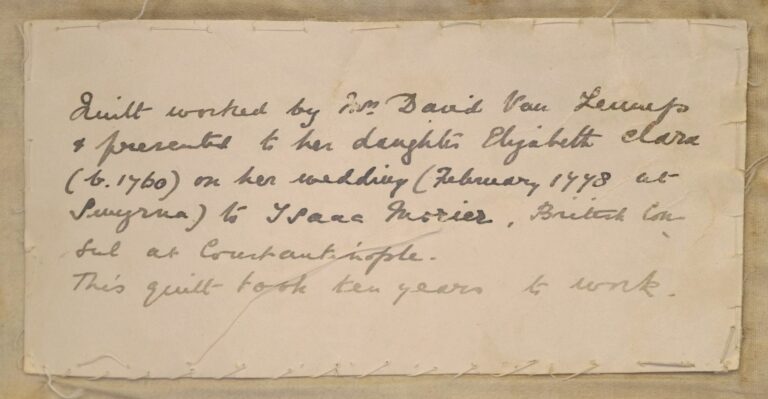 Quilt worked by Mrs David Van Lennep
& presented to her daughter Elizabeth Clara
(b. 1760) on her wedding (February 1778 at
Smyrna) to Isaac Morier, British Con-
sul at Constantinople.
This quilt took ten years to work.